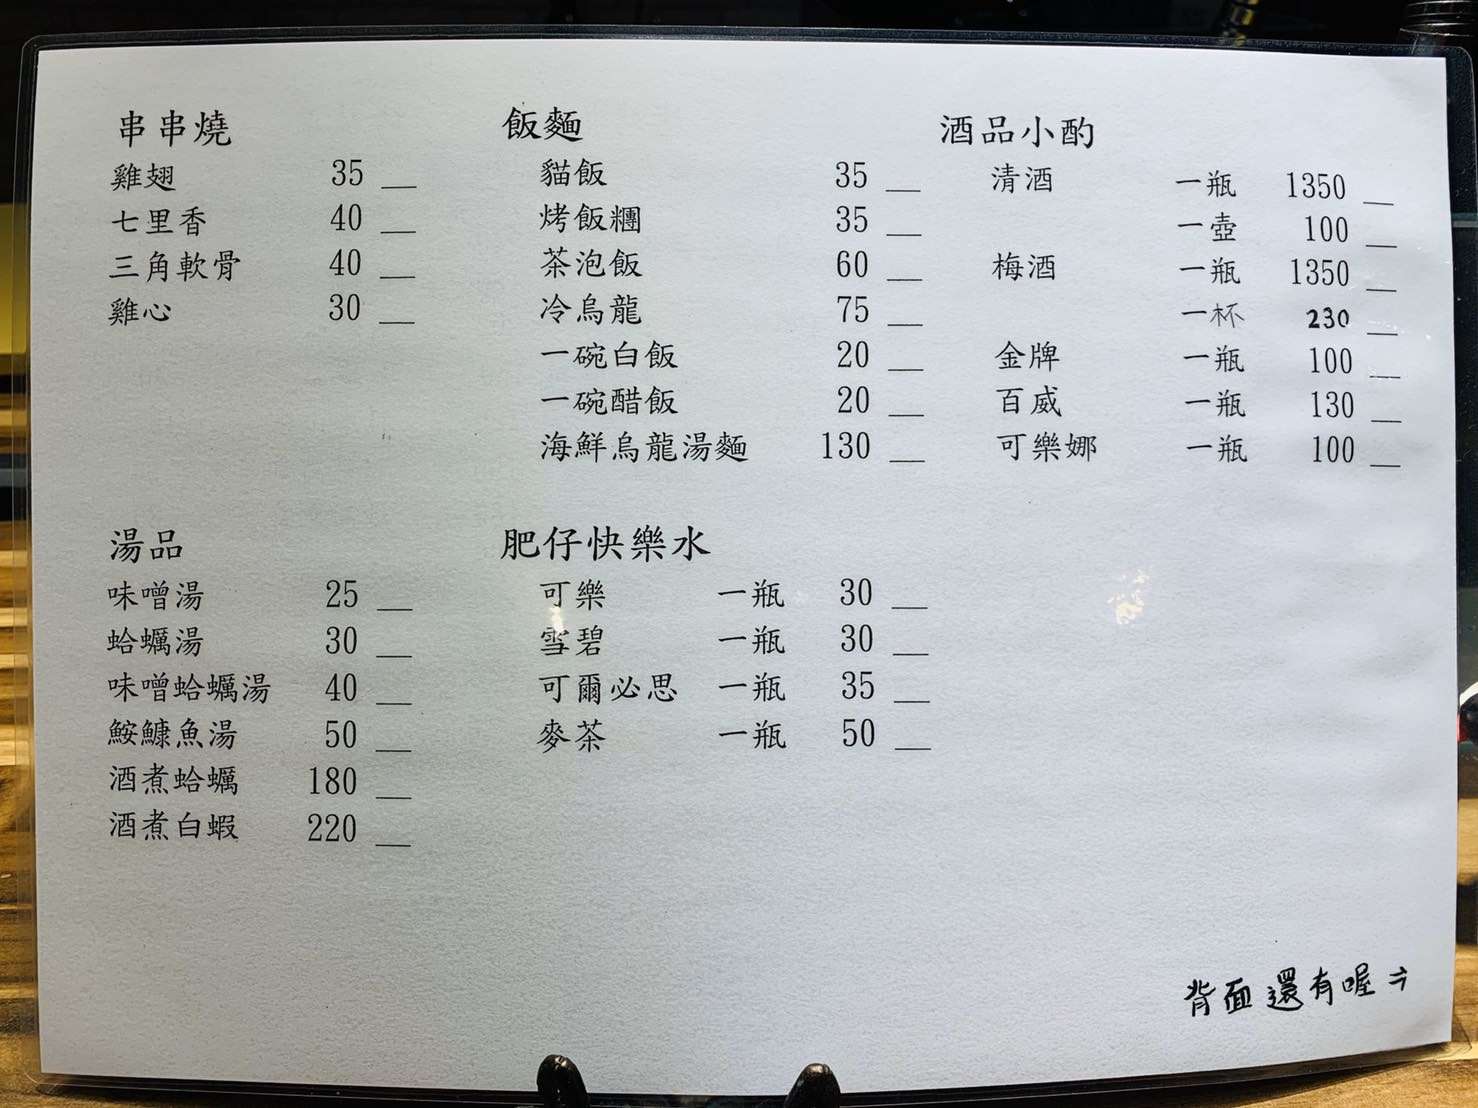 串串燒
雞翅 35 __
七里香 40 __
三角軟骨 40 __
雞心 30 __
飯麵
貓飯 35 __
烤飯糰 35 __
茶泡飯 60 __
冷烏龍 75 __
一碗白飯 20 __
一碗醋飯 20 __
海鮮烏龍湯麵 130 __
酒品小酌
清酒 一瓶 1350 __
一壺 100 __
梅酒 一瓶 1350 __
一杯 230 __
金牌 一瓶 100 __
百威 一瓶 130 __
可樂娜 一瓶 100 __
湯品
味噌湯 25 __
蛤蠣湯 30 __
味噌蛤蠣湯 40 __
鮟鱇魚湯 50 __
酒煮蛤蠣 180 __
酒煮白蝦 220 __
肥仔快樂水
可樂 一瓶 30 __
雪碧 一瓶 30 __
可爾必思 一瓶 35 __
麥茶 一瓶 50 __
背面還有喔→